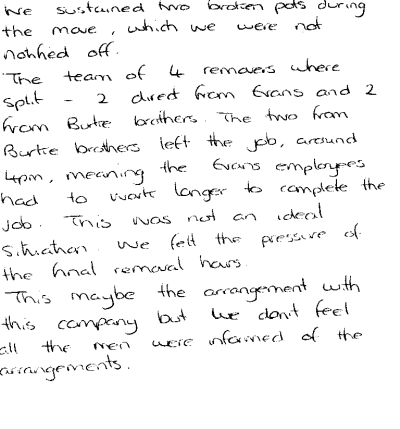 We sustained two broken pots during
the move, which we were not
notified off.
The team of 4 removers where
split - 2 direct from Evans and 2
from Burke brothers. The two from
Burke brothers left the job, around
4pm, meaning the Evans employees
had to work longer to complete the
job. This was not an ideal
situation. We felt the pressure of
the final removal hours.
This maybe the arrangement with
this company but we don't feel
all the men were informed of the
arrangements.